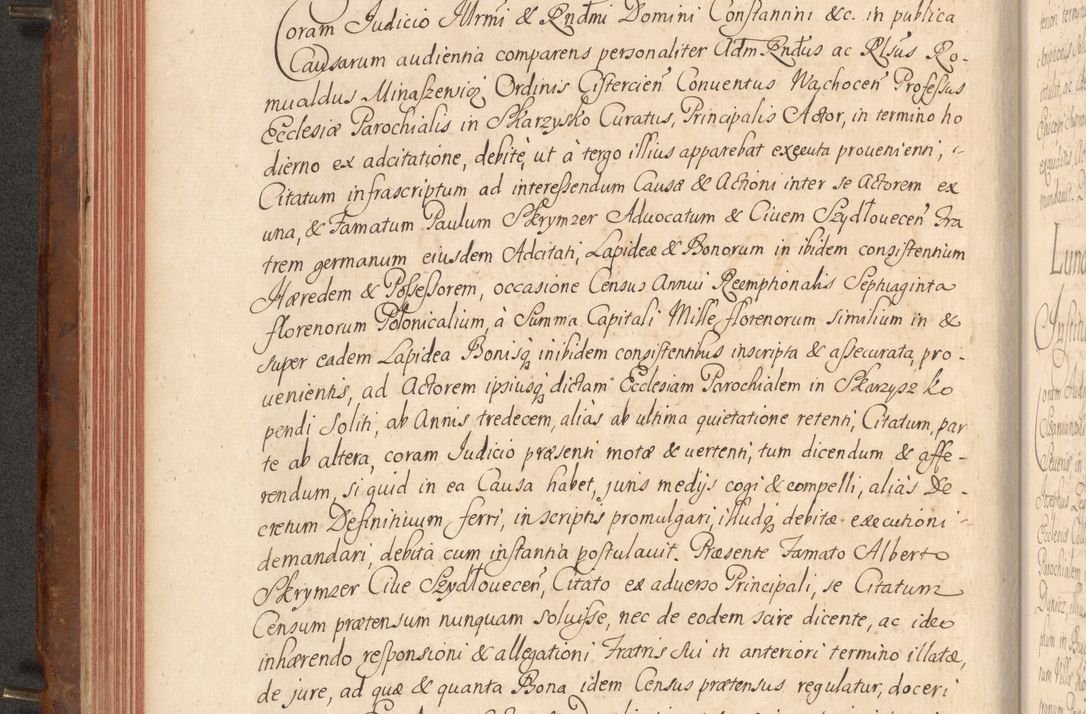 Coram Judicio Illrmi & Rndmi Domini Constantini &c. in publica
Causarum audientia comparens personaliter Adm Rndus ac Rlsus Ro-
mualdus Minaszensiq Ordinis Cistercien Conventus Wąchocen Professus
Ecclesiæ Parochialis in Skarzysko Curatus, Principalis Actor, in termino ho
dierno ex adcitatione, debitè, ut à tergo illius apparebat executa provenienti,
Citatum infrascriptum ad interessendum Causæ & Actioni inter se Actorem ex
una, & Famatum Paulum Skrymzer Advocatum & Civem Szydłovecen Fra
trem germanum eiusdem Adcitati, Lapideæ & Bonorum in ibidem consistentium
Hæredem & Possessorem, occasione Census Annui Reemptionalis Septuaginta
florenorum Polonicalium, à Summa Capitali Mille florenorum similium in &
super eadem Lapidea Bonisq inibidem consistentibus inscripta & assecurata, pro-
venientis, ad Actorem ipsiusq dictam Ecclesiam Parochialem in Skarzysz ko
pendi soliti, ab Annis tredecem, aliàs ab ultima quietatione retenti, Citatum, par
te ab altera, coram Judicio præsenti motæ & vertenti, tum dicendum & affe-
rendum, si quid in ea Causa habet, juris medijs cogi & compelli, aliàs De-
cretum Definitivum ferri, in scriptis promulgari, illudq debitæ executioni
demandari, debita cum instantia postulavit. Præsente Famato Alberto
Skrymzer Cive Szydłovecen, Citato ex adverso Principali, se Citatum
Censum prætensum nunquam solvisse, nec de eodem scire dicente, ac ideo
inhærendo responsioni & allegationi Fratris sui in anteriori termino illatæ,
de jure, ad quæ & quanta Bona idem Census prætensus regulatur, doceri